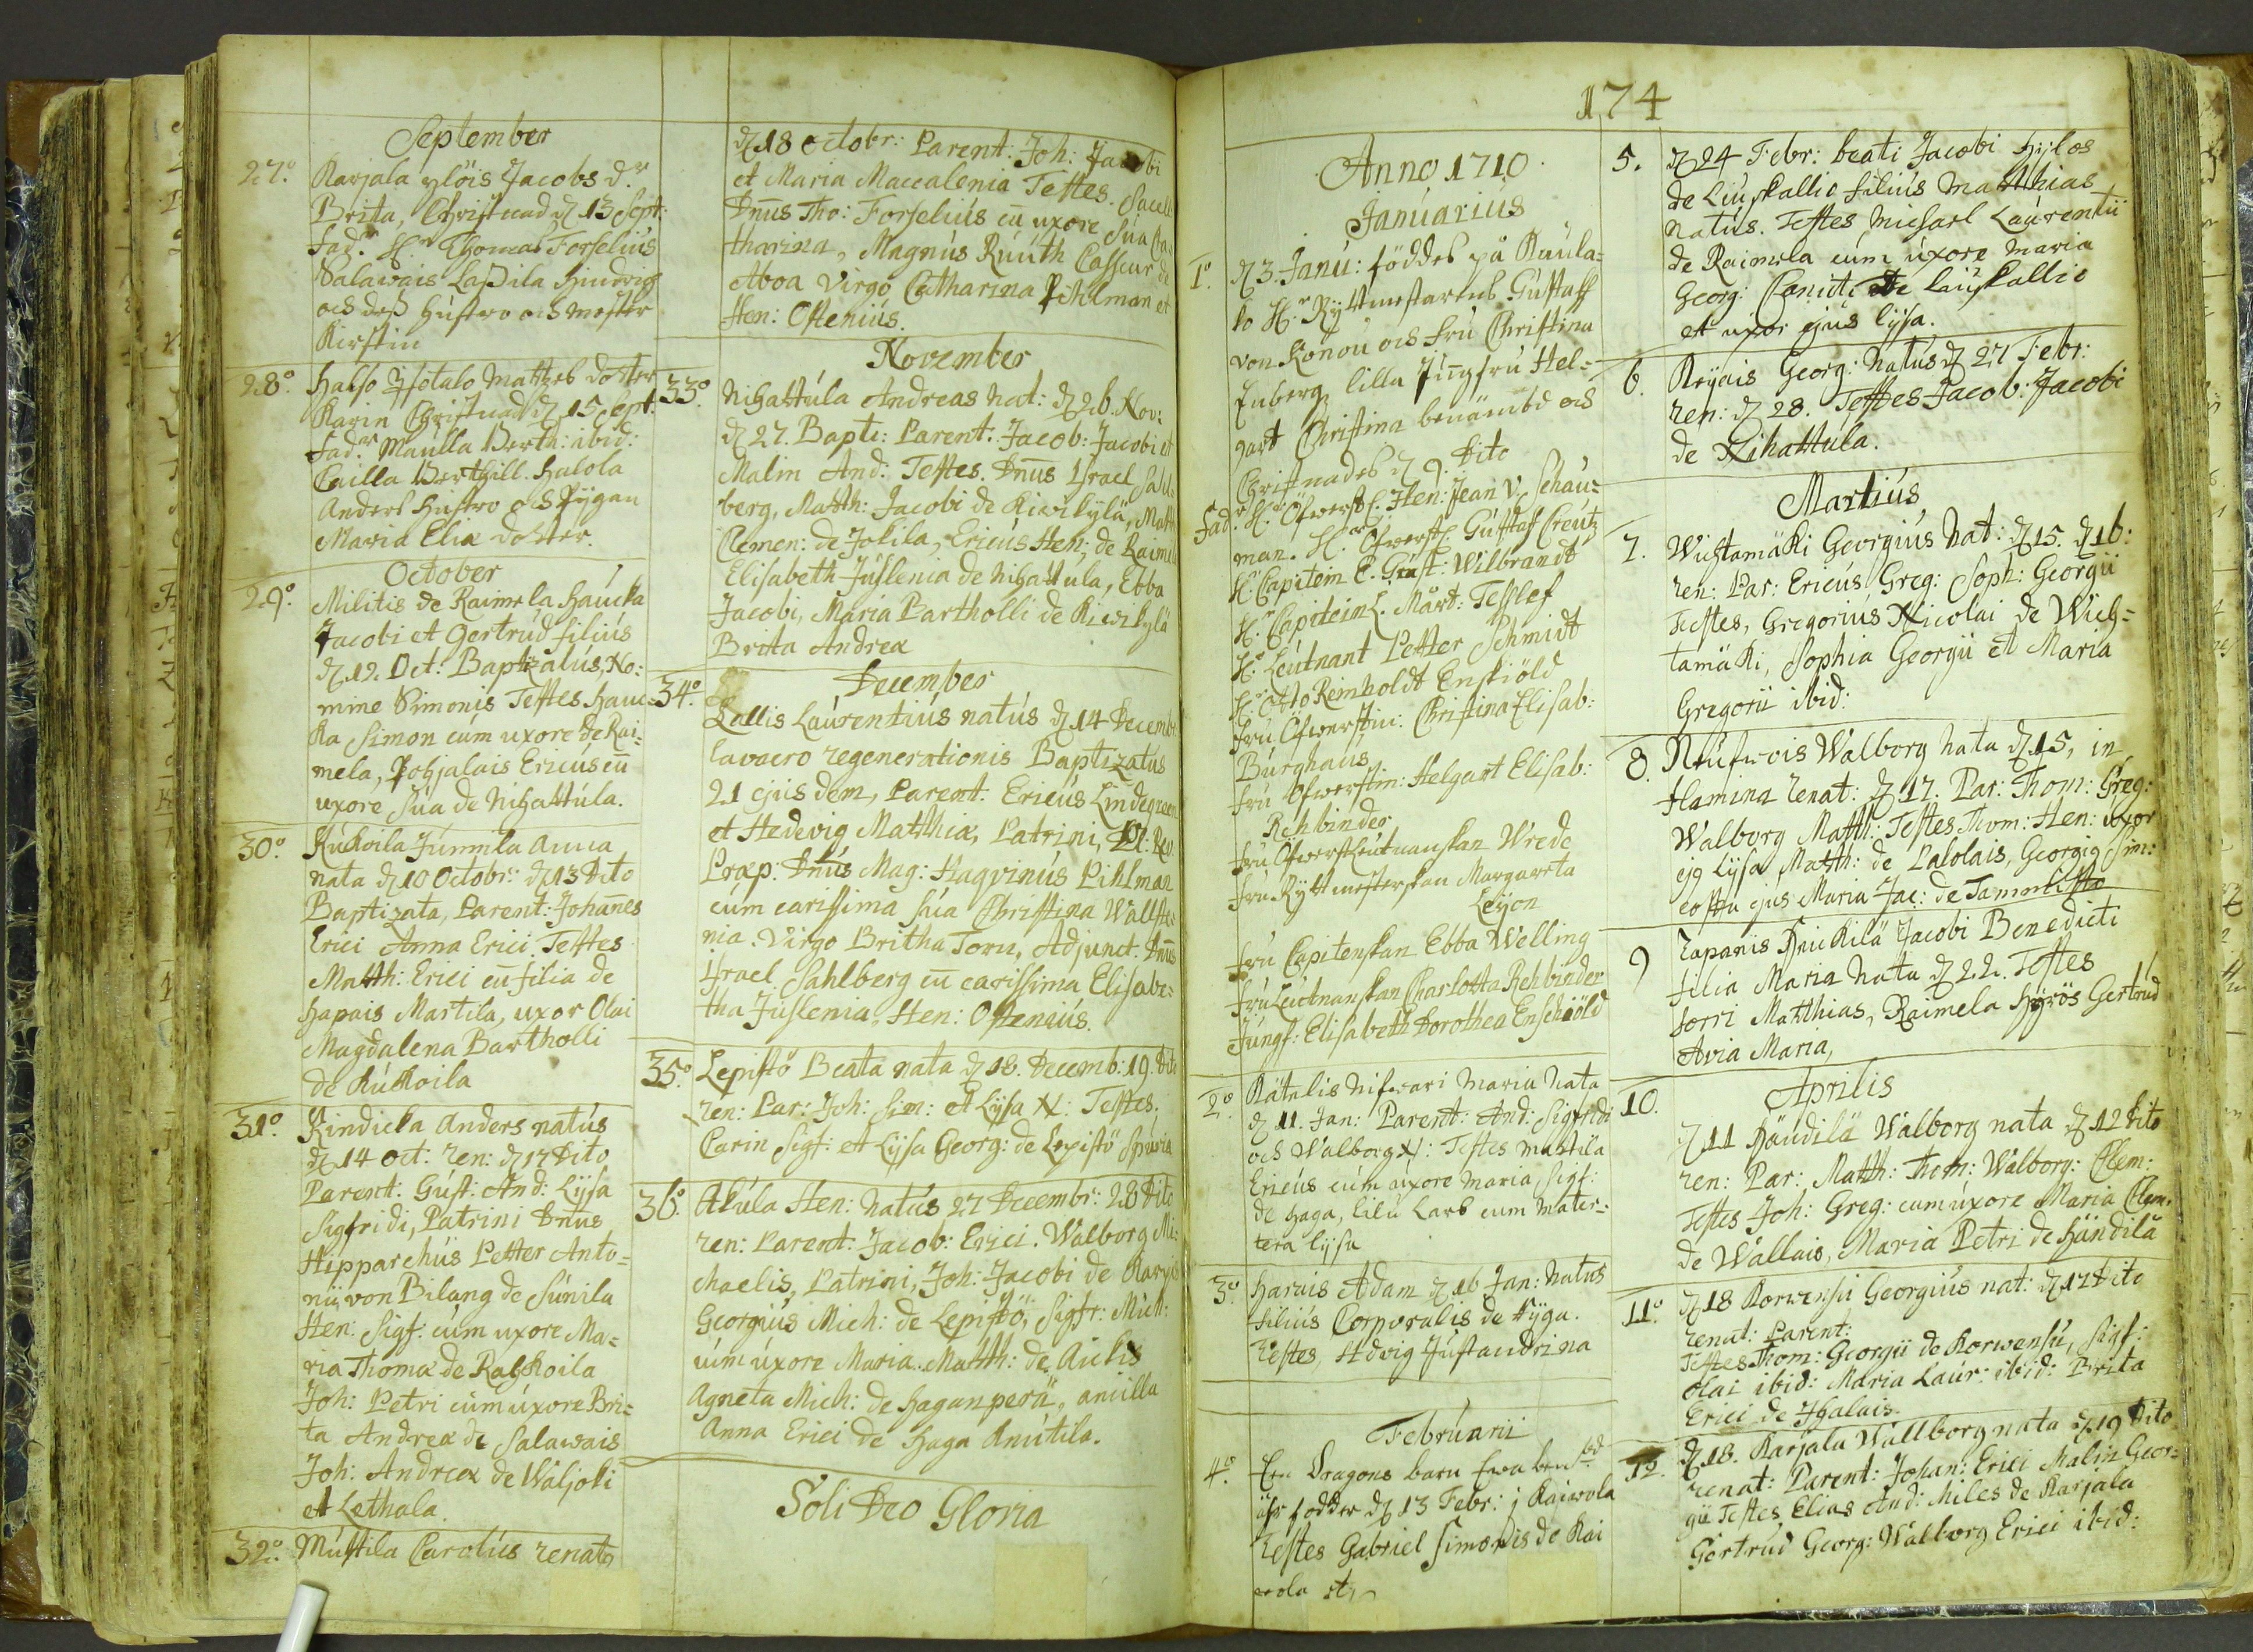 September
27.° Karjala ylöis Jacobs d.r
Brita, Christnad d 13 Sept:
fad.r H.r Thomas Forselius
Salawais Laßila Hindrich
och deß hustro och moster
Kirstin
28.° Halso Isotalo Mattzes dotter
Karin Christnad d 15 Sept.
fad.r Maulla Berth: ibid:
Cailla Berthill. Halola
Anders hustro och Pygan
Maria Eliæ dotter.
October
29.° Militis de Raimela Haucka
Jacobi et Gertrud filius
d 12. Oct: Baptizatus, No:
mine Simonis Testes Hauc-
ka Simon cum uxore de Rai:
mela, Pohjalais Ericus cu
uxore sua de Nihattula.
30.° Kukoila Junnila Anna
nata d 10 Octobr: d 13 Dito
Baptizata, Parent: Johanes
Erici Anna Erici. Testes
Matth: Erici cu filia de
Hapais Martila, uxor Olai
Magdalena Bartholli
de Kukoila
31.° Kindicka Anders natus
d 14 Oct: ren: d 17 Dito
Parent: Gust: And: Lysa
Sigfridi, Patrini Dnus
Hipparchus Petter Anto=
nii von Bilang de Sunila
Hen: Sigf: cum uxore Ma=
ria Thomæ de Rahkoila
Joh: Petri cum uxore Bri=
ta Andreæ de Salawais
Joh: Andreæ de Waljoki
et Lethala.
32.° Mustila Carolus renatq
d 18 Octobr: Parent: Joh: Jacobi
et Maria Maccalenia Testes. Sacell
Dnus Tho: Forselius cu uxore sua Ca-
tharina, Magnus Ruuth Casseur de
Aboa Virgo Catharina Pihlman et
Hen: Ostenius.
November
33.° Nihattula Andreas nat: d 26. Nov:
d 27. Bapti: Parent: Jacob: Jacobi et
Malin And: Testes. Dnus Israel Sahl-
berg, Matth: Jacobi de Kiwikylä, Matth
Clemen: de Jokila, Ericus Hen: de Raimela
Elisabeth Juslenia de Nihattula, Ebba
Jacobi, Maria Bartholli de Kiwikylä
Brita Andreæ
December
34.° Lallis Laurentius natus d 14 Decemb:
lavacro regenerationis Baptizatus
21 ejusdem, Parent. Ericus Lindegreen
et Hedevig Matthiæ, Patrini, Pl: Rev.
Præp: Dnus Mag: Haqvinus Pihlman
cum carissima sua Christina Wallste-
nia. Virgo Britha Torn, Adjunct. Dnus
Israel Sahlberg cu carissima Elisabe:
tha Juslenia, Hen: Ostenius.
35.° Lepistö Beata nata d 18. Decemb: 19. Dito
ren: Par: Joh: Sim: et Lysa N: Testes.
Carin Sigf: et Lysa Georg: de Lepistö Spuria
36.° Akula Hen: Natus 27 Decembr: 28 Dito
ren: Parent: Jacob: Erici. Walborg Mi:
chaelis, Patrini, Joh: Jacobi de Karyis
Georgius Mich: de Lepistö, Sigfr: Mich:
cum uxore Maria. Matth: de Aichis
Agneta Mich: de Haganperä, ancilla
Anna Erici de Haga Knutila.
Soli Deo Gloria
174
Anno 1710
Januarius
1.° d 3. Janu: föddes på Kaula:
lo H.r Ryttmestarens Gustaff
von Konou och fru Christina
Enberg lilla Jungfru Hel=
gart Christina benämbd och
Christnades d 9. Dito
fad.r H.r Öfwerst L. Hen: Jean V. Schau=
man. H.r Ofwerst L. Gustaf Creutz
H. Capitein C. Gust: Wilbrandt
H.r Capitein L. Mårt: Tesslef
H.r Leutnant Petter Schmidt
H.r Otto Reinholdt Enskiöld
Fru Öfwerstin: Christina Elisab:
Burghaus
Fru Öfwerstin: Helgart Elisab:
Rehbinder
Fru Ofwerst Leutnanskan Wrede
Fru Ryttmesterskan Margareta
Leyon
Fru Capitenskan Ebba Welling
Fru Leutnanskan Charlotta Rehbinder
Jungf: Elisabeth Dorothea Enschöld
2.° Kätelis Nifwari Maria Nata
d 11. Jan: Parent: And: Sigfridi
och Walborg N: Testes Mastila
Ericus cum uxore Maria Sigf:
de Haga, Lilu Lars cum Mater=
tera Lysa
3.° Haruis Adam d 16 Jan: Natus
filius Corporalis de Hyga.
Testes, Hedvig Justandrina
Februarii
4.° Een Dragons barn
ähr fodder d 13 Febr: j Kaiwola
Testes Gabriel Simonis de Kai
wola et,
5. d 24 Febr: beati Jacobi Hylös
de Liuskallio filius Matthias
natus. Testes Michael Laurentii
de Raimela cum uxore Maria
Georg: Canuti de Liuskallio
et uxor ejus Lysa.
6. Kryais Georg: Natus d 27 Febr:
ren: d 28. Testes Jacob: Jacobi
de Nihattula.
Martius
7. Wichtamäki Georgius Nat: d 15. d 16:
ren: Par: Ericus Greg: Soph: Georgii
Testes, Gregorius Nicolai de Wich=
tamäki, Sophia Georgii et Maria
Gregorii ibid:
8. Neufwois Walborg Nata d 15, in
Hamina renat: d 17. Par: Thom: Greg:
Walborg Matth: Testes Thom: Hen: uxor
ejq Lysa Matth: de Palolais, Georgiq Sim:
costa ejus Maria Jac: de Tamenisto
9 Tapanis Knickilä Jacobi Benedicti
filia Maria Nata d 22. Testes
Sorri Matthias, Raimela Hyrös Gertrud
Avia Maria,
Aprilis
10. d 11 Händilä Walborg nata d 12 Dito
ren: Par: Matth: Thom: Walborg: Clem:
Testes Joh: Greg: cum uxore Maria Clem:
de Wallais, Maria Petri de Händilä
11.° d 18 Korwensu Georgius nat: d 17 Dito
renat: Parent:
Testes Thom: Georgii de Korwensu, Sigf:
Olai ibid: Maria Laur: ibid: Brita
Erici de Ihalais.
12. d 18. Karjala Wallborg nata d 19 Dito
renat: Parent: Johan: Erici Malin Geor=
gii Testes Elias And: Miles de Karjala
Gertrud Georg: Walborg Erici ibid: